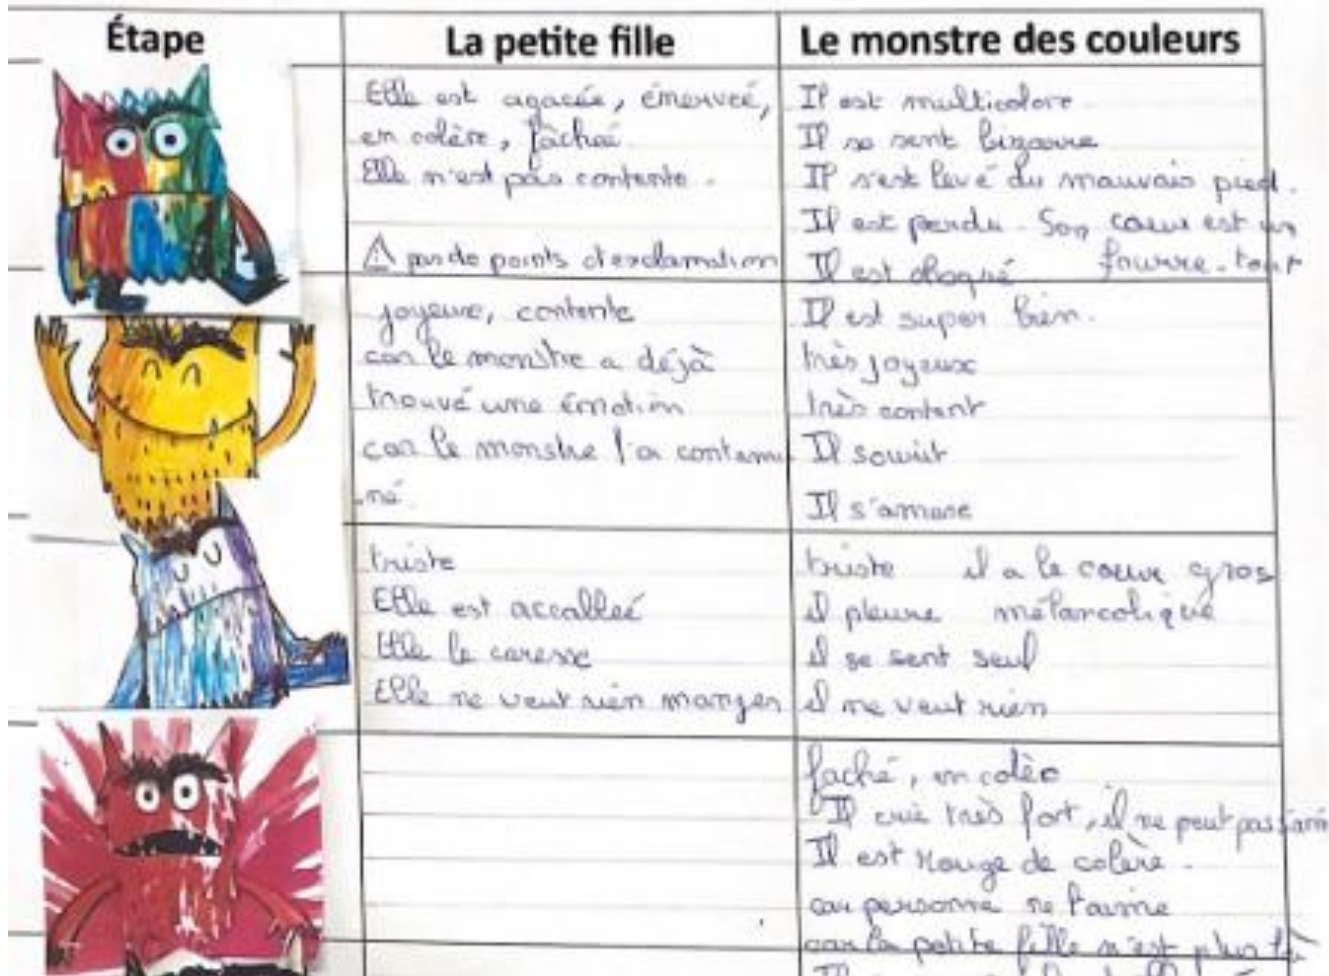 Étape
La petite fille
Le monstre des couleurs
Elle est agacée, émerveé,
en colère, fâcheé
Elle n'est pas contente.
⚠ pas de points d'exclamation
Il est multicolore
Il se sent bizarre
Il s'est levé du mauvais pied.
Il est perdu. Son cœur est un
fourre-tout
Il est choqué
joyeuse, contente
car le monstre a déjà
trouvé une émotion
car le monstre l'a contami
né.
Il est super bien.
très joyeux
très content
Il sourit
Il s'amuse
triste
Elle est accalleé
Elle le caresse
Elle ne veut rien manger
triste il a le cœur gros
il pleure mélancolique
il se sent seul
il ne veut rien
faché, en colère
Il crie très fort, il ne peut pas
Il est rouge de colère.
car personne ne l'aime
car la petite fille n'est plus là